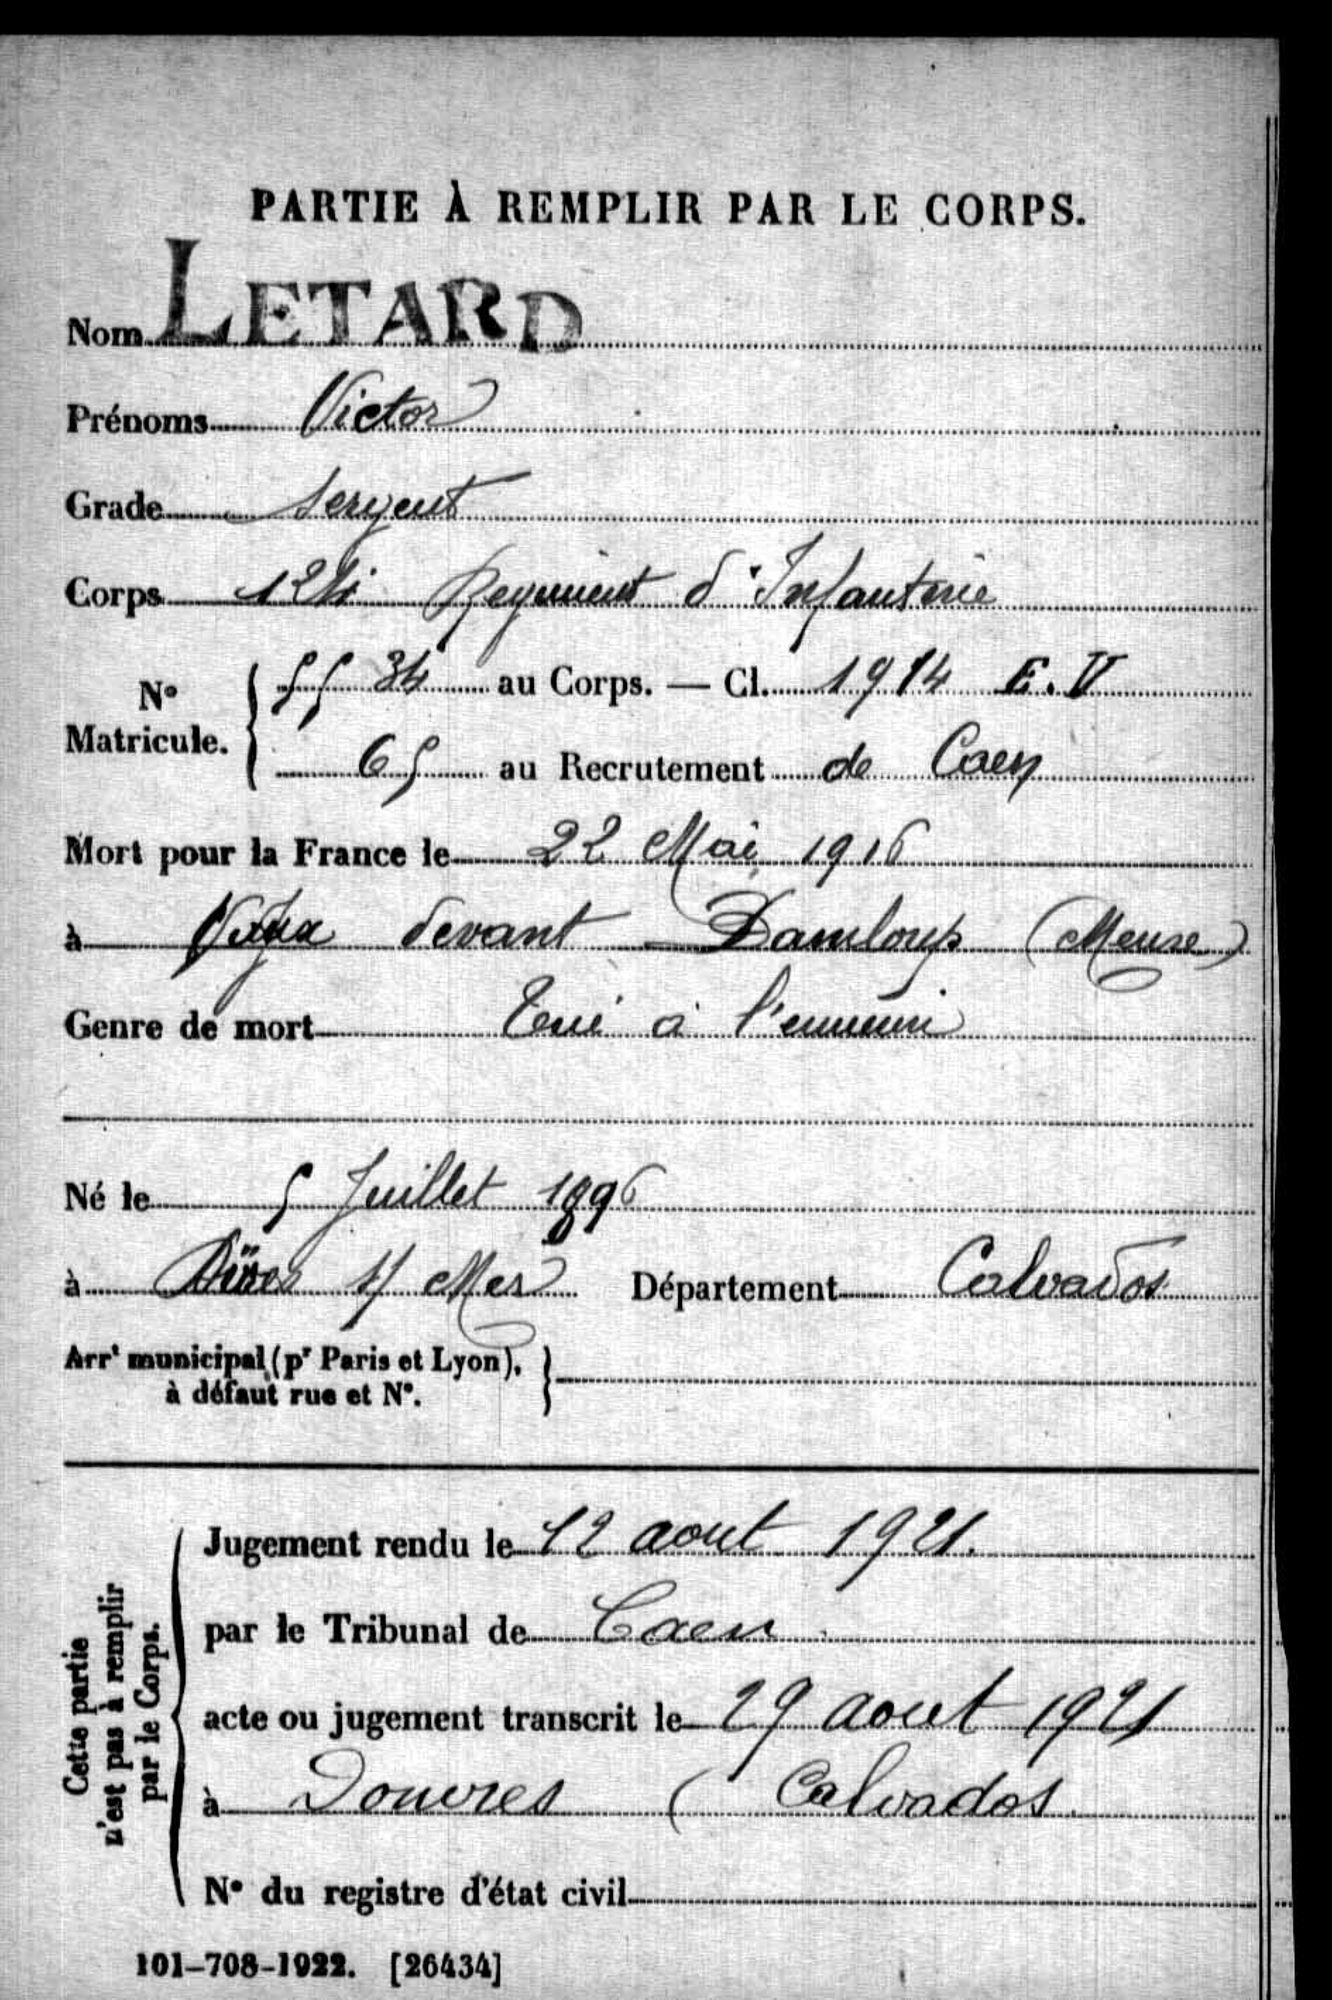 PARTIE À REMPLIR PAR LE CORPS.
Nom LETARD
Prénoms Victor
Grade Sergent
Corps Regiment d'Infanterie
N° Matricule. 5534 au Corps. — Cl. 1914 E.V
65 au Recrutement de Caen
Mort pour la France le 22 Mai 1916
à Vaux devant Damloup (Meuse)
Genre de mort Tué à l'ennemi
Né le 5 Juillet 1896
à Dives s/ Mer Département Calvados
Arrt municipal (pr Paris et Lyon), à défaut rue et N°.
Cette partie n'est pas à remplir par le Corps.
Jugement rendu le 12 aout 1921.
par le Tribunal de Caen
acte ou jugement transcrit le 29 aout 1921
à Douvres (Calvados
N° du registre d'état civil
101-708-1922. [26434]